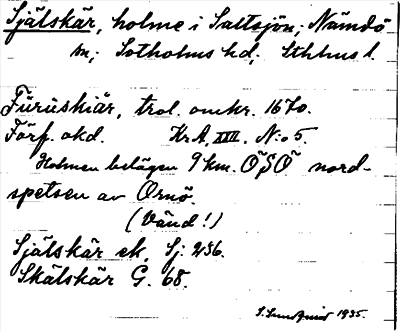 Själskär, holme i Saltsjön; Nämdö
sn; Sotholms hd; Sthlms l.
Füruskiär, trol. omkr. 1670.
Förf. okd. KrA, XIII. N:o 5.
Holmen belägen 9 km. OSO nord-
spetsen av Ornö.
(Vänd!)
Själskär ek. Sj: 256.
Skälskär G. 68.
S. Sundqvist 1935.